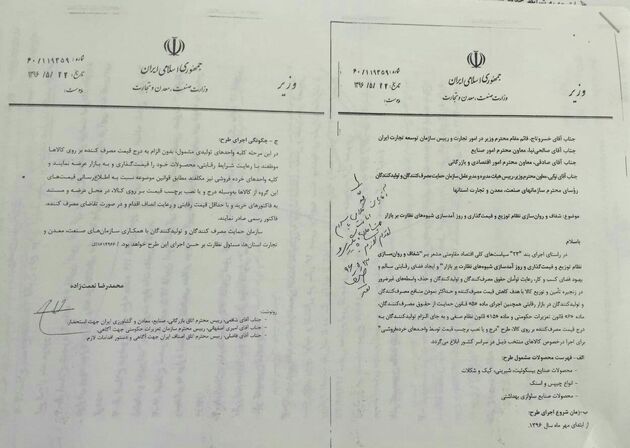 جمهوری اسلامی ایران
وزارت صنعت، معدن و تجارت
وزیر
شماره: ۶۰/۱۱۹۳۵۹
تاریخ: ۱۳۹۶/۵/۲۲
پیوست:
جناب آقای خسروتاج، قائم مقام محترم وزیر در امور تجارت و رییس سازمان توسعه تجارت ایران
جناب آقای صالحی‌نیا، معاون محترم امور صنایع
جناب آقای صادقی، معاون محترم امور اقتصادی و بازرگانی
جناب آقای نوابی، معاون محترم وزیر، رییس هیات مدیره و مدیرعامل سازمان حمایت مصرف‌کنندگان و تولیدکنندگان
رؤسای محترم سازمانهای صنعت، معدن و تجارت استانها
موضوع: شفاف و روان‌سازی نظام توزیع و قیمت‌گذاری و روز آمدسازی شیوه‌های نظارت بر بازار
باسلام
در راستای اجرای بند "۲۳" سیاست‌های کلی اقتصاد مقاومتی مشعر بر "شفاف و روان‌سازی
نظام توزیع و قیمت‌گذاری و روز آمدسازی شیوه‌های نظارت بر بازار" و ایجاد فضای رقابتی سالم و
بهبود فضای کسب و کار، رعایت توأمان حقوق مصرف‌کنندگان و تولیدکنندگان و حذف واسطه‌های غیرضرور
در زنجیره تأمین و توزیع کالا با هدف کاهش قیمت مصرف‌کننده و حداکثر نمودن منافع مصرف‌کنندگان
و تولیدکنندگان در بازار رقابتی همچنین اجرای ماده قانون حمایت از حقوق مصرف‌کنندگان،
ماده قانون تعزیرات حکومتی و ماده قانون نظام صنفی و به جای الزام تولیدکنندگان به
درج قیمت مصرف‌کننده بر روی کالا، طرح "درج و یا نصب برچسب قیمت توسط واحدهای خرده‌فروشی"
برای اجرا درخصوص کالاهای منتخب ذیل در سراسر کشور ابلاغ می‌گردد.
الف- فهرست محصولات مشمول طرح:
- محصولات صنایع بیسکوئیت، شیرینی، کیک و شکلات
- انواع چیپس و اسنک
- محصولات صنایع سلولزی بهداشتی
ب- زمان شروع اجرای طرح:
از ابتدای مهر ماه سال ۱۳۹۶.
جمهوری اسلامی ایران
وزارت صنعت، معدن و تجارت
وزیر
شماره: ۶۰/۱۱۹۳۵۹
تاریخ: ۱۳۹۶/۵/۲۲
پیوست:
ج - چگونگی اجرای طرح:
در این مرحله کلیه واحدهای تولیدی مشمول، بدون الزام به درج قیمت مصرف کننده بر روی کالاها
موظفند با رعایت شرایط رقابتی، محصولات خود را قیمت‌گذاری و به بازار عرضه نمایند و
کلیه واحدهای خرده فروشی نیز مکلفند مطابق قوانین موضوعه نسبت به اطلاع‌رسانی قیمت‌های
این گروه از کالاها به‌وسیله درج و یا نصب برچسب قیمت بر روی کالا، در محل عرضه و مستند
به فاکتورهای خرید و با حداقل قیمت رقابتی و رعایت انصاف اقدام و در صورت تقاضای مصرف کننده،
فاکتور رسمی صادر نمایند.
سازمان حمایت مصرف کنندگان و تولیدکنندگان با همکاری سازمان‌های صنعت، معدن و
تجارت استان‌ها، مسئول نظارت بر حسن اجرای این طرح خواهد بود.
محمدرضا نعمت‌زاده
رونوشت:
جناب آقای شافعی، رییس محترم اتاق بازرگانی، صنایع، معادن و کشاورزی ایران جهت استحضار.
جناب آقای امیری اصفهانی، رییس محترم سازمان تعزیرات حکومتی جهت آگاهی.
جناب آقای فاضلی، رییس محترم اتاق اصناف ایران جهت آگاهی و دستور اقدامات لازم.